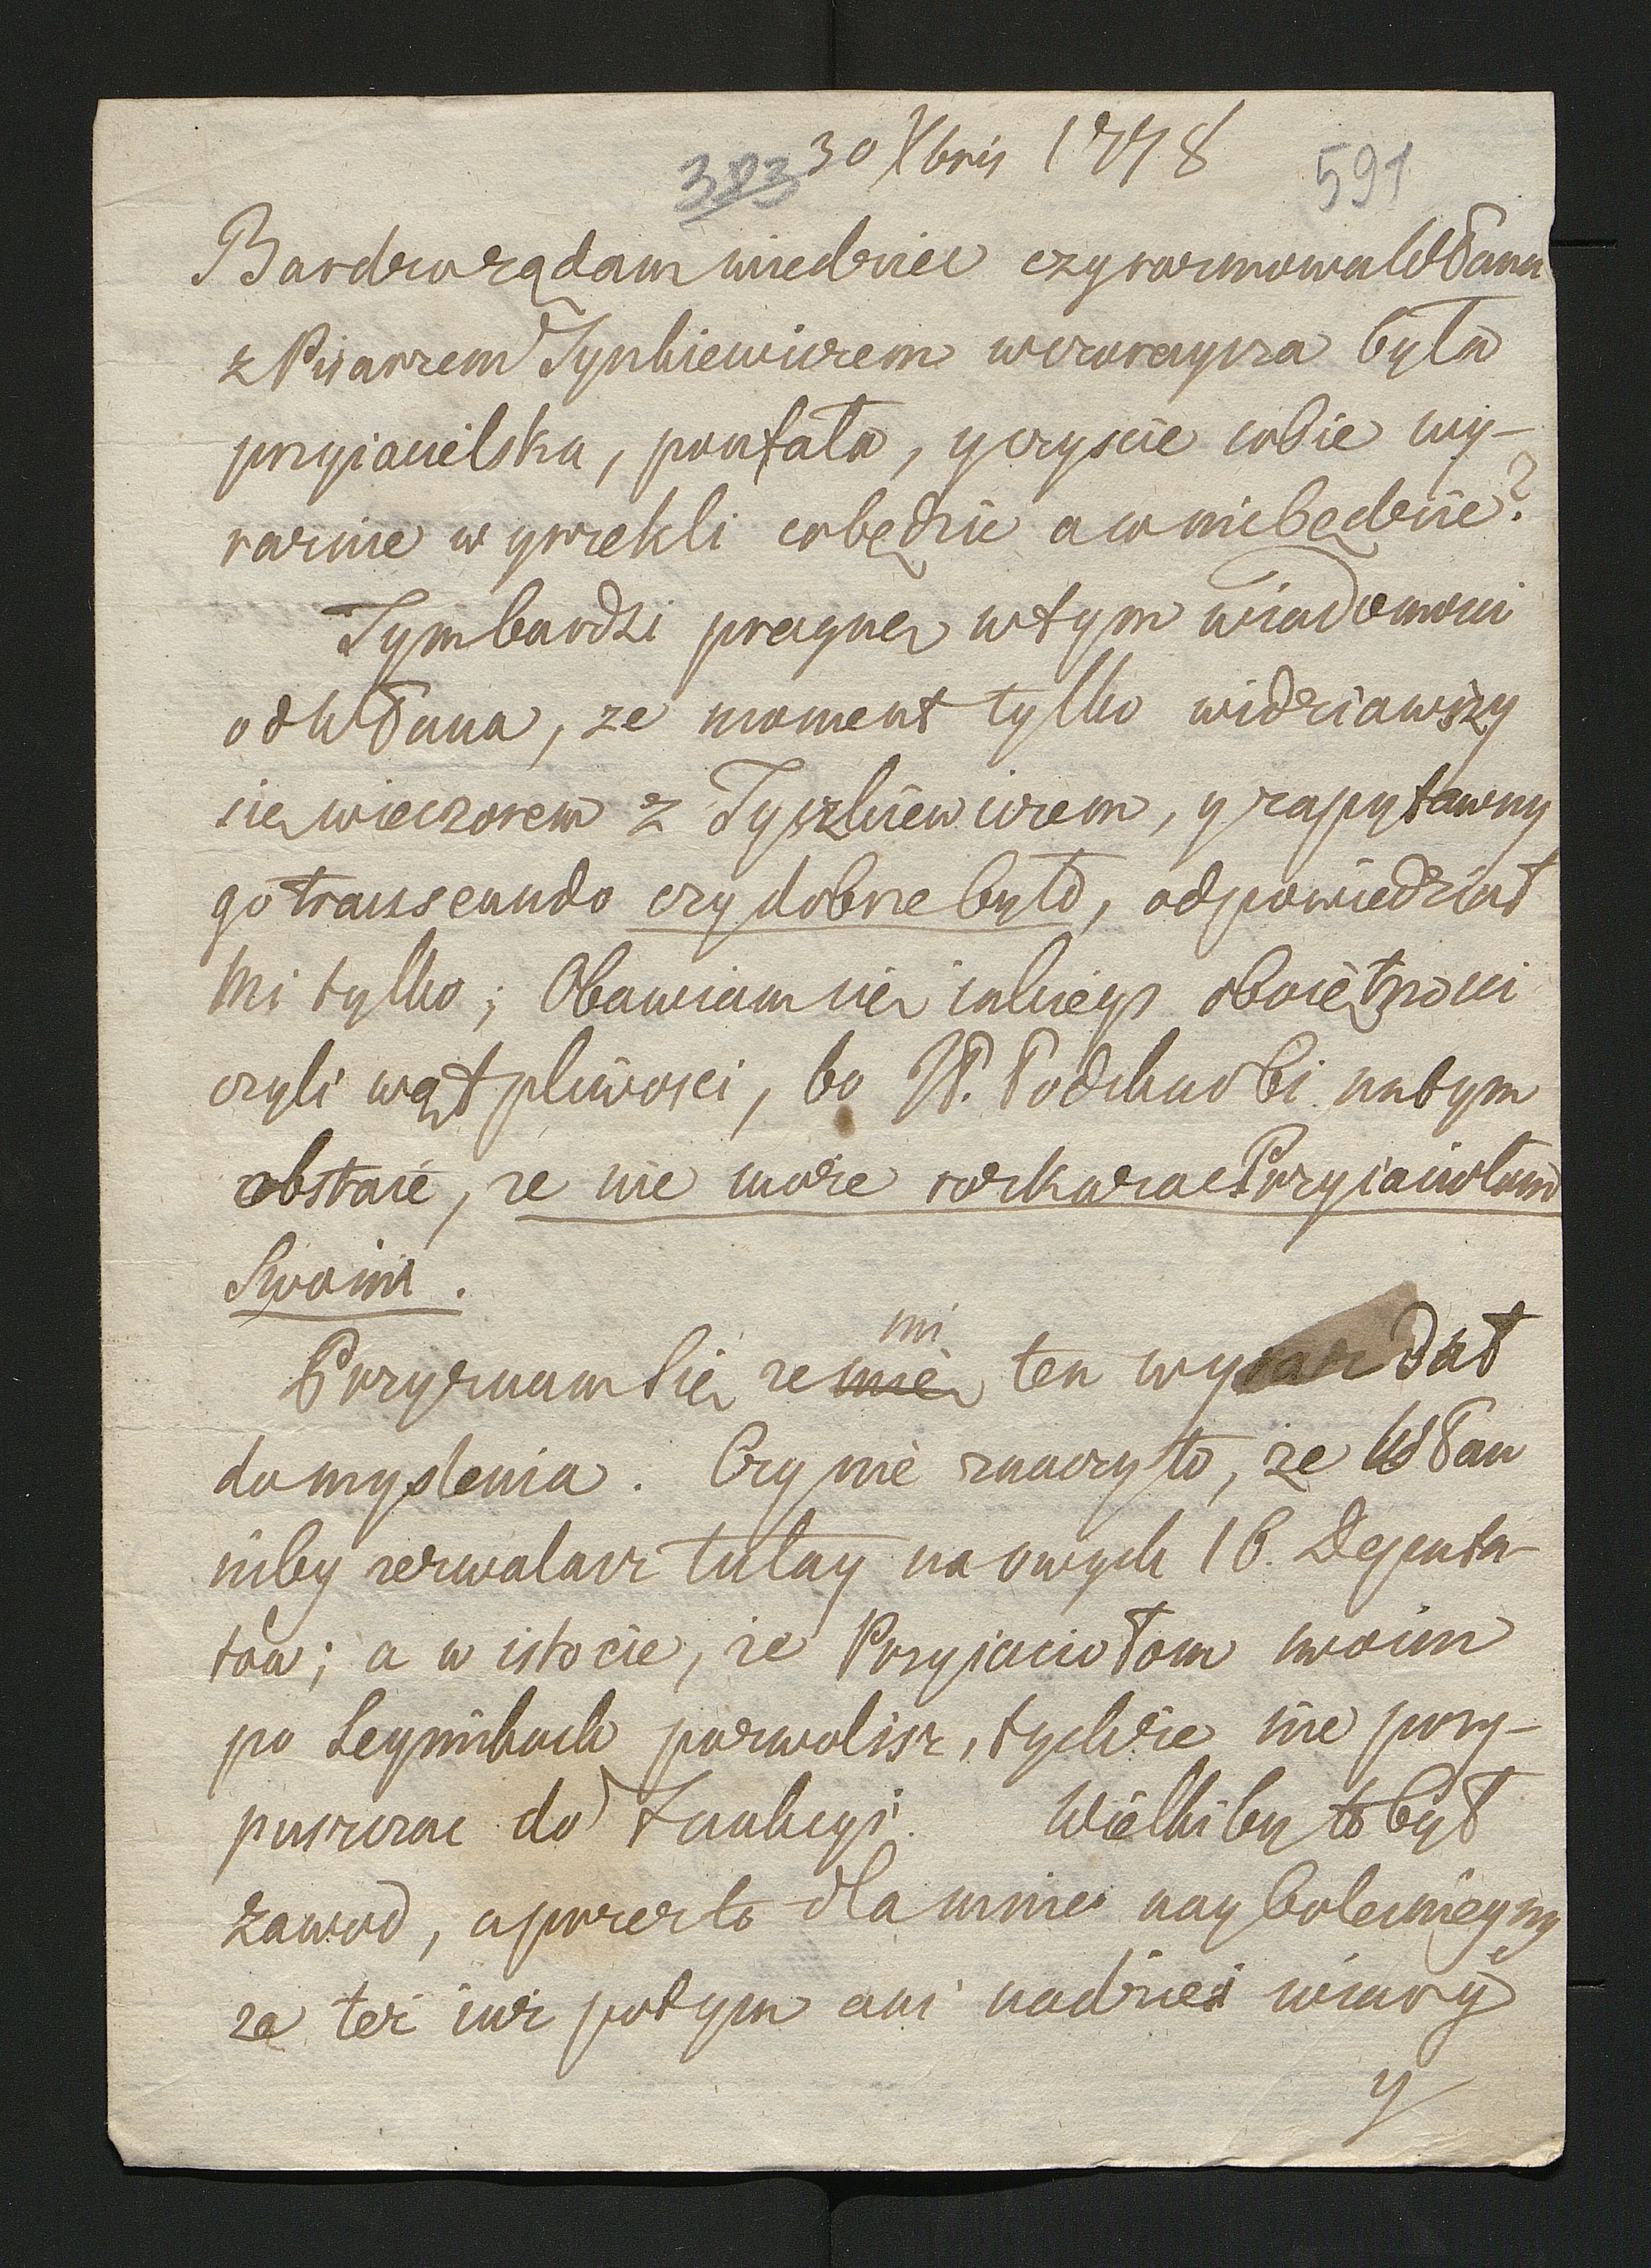 383 30 Xbris 1778 591
Bardzo rządam wiedziec czy rozmowa WPana
z Pisarzem Tyszkiewiczem wczoraysza była
przyiacielska, poufała, y czyscie sobie wy-
raznie wyrzekli co będzie a co nie będzie?
Tym bardzi pragnę w tym wiadomosci
od WPana, ze moment tylko widziawszy
się wieczorem z Tyszkiewiczem, y zapytawszy
go transeundo czy dobrze było, odpowiedział
Mi tylko; Obawiam się iakieys oboiętnosci
czyli wątpliwosci, bo JP. Podskarbi na tym
obstaie, ze nie może rozkazac Przyiaciołom
Swoim.
Przyznam się ze mię mi ten wyraz dał
do myslenia. Czy nie znaczy to, ze WPan
niby zezwalasz tutay na owych 16. Deputa-
tow; a w istocie, ze Przyjaciołom swoim
po Seymikach pozwolisz, tychże nie przy-
puszczac do Funkcyi. Wielki by to był
zawod, a przez to dla mnie naybolesnieyszy
ze też iuż potym ani nadziei wiary
y